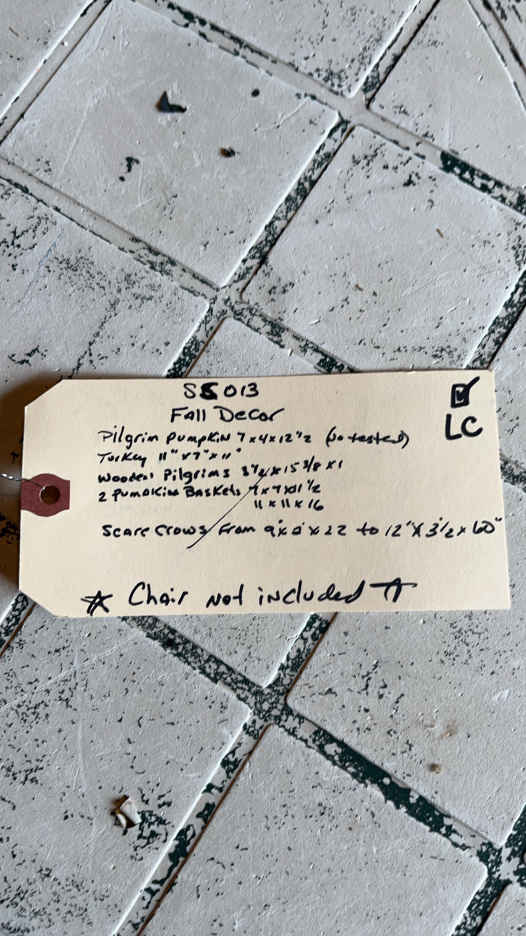 SS 013
Fall Decor
LC
Pilgrim Pumpkin 7x4x12½ (no tested)
Turkey 11"x7"x11"
Wooden Pilgrims 3½x15 3/8x1
2 Pumpkin Baskets 9x9x11½
11x11x16
Scare Crows From x22 to 12"x3½x60"
☆ Chair not included ☆